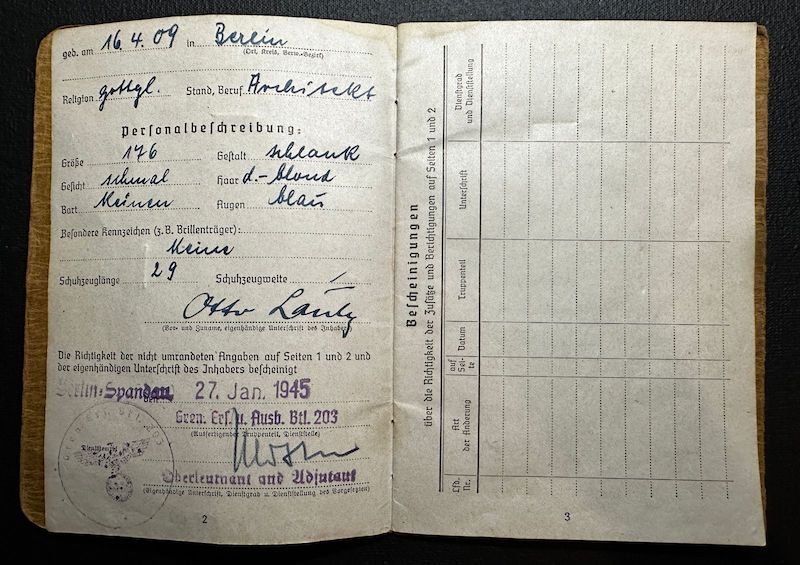 geb. am 16.4.09 in Berlin
(Ort, Kreis, Verw.-Bezirk)
Religion gottgl. Stand, Beruf Architekt
Personalbeschreibung:
Größe 176 Gestalt schlank
Gesicht schmal Haar d.-blond
Bart Keinen Augen blau
Besondere Kennzeichen (z. B. Brillenträger):
Keine
Schuhzeuglänge 29 Schuhzeugweite /
Otto Lautz
(Vor- und Zuname, eigenhändige Unterschrift des Inhabers)
Die Richtigkeit der nicht umrandeten Angaben auf Seiten 1 und 2 und
der eigenhändigen Unterschrift des Inhabers bescheinigt
Berlin-Spandau, 27. Jan. 1945
Gren. Ers. u. Ausb. Btl. 203
(Ausfertigender Truppenteil, Dienststelle)
Oberleutnant und Adjutant
(Eigenhändige Unterschrift, Dienstgrad u. Dienststellung des Vorgesetzten)
Dienstsiegel
2
Bescheinigungen
über die Richtigkeit der Zusätze und Berichtigungen auf Seiten 1 und 2
Lfd. Nr.
Art der Änderung
auf Sei-
te
Datum
Truppenteil
Unterschrift
Dienstgrad
und Dienststellung
3